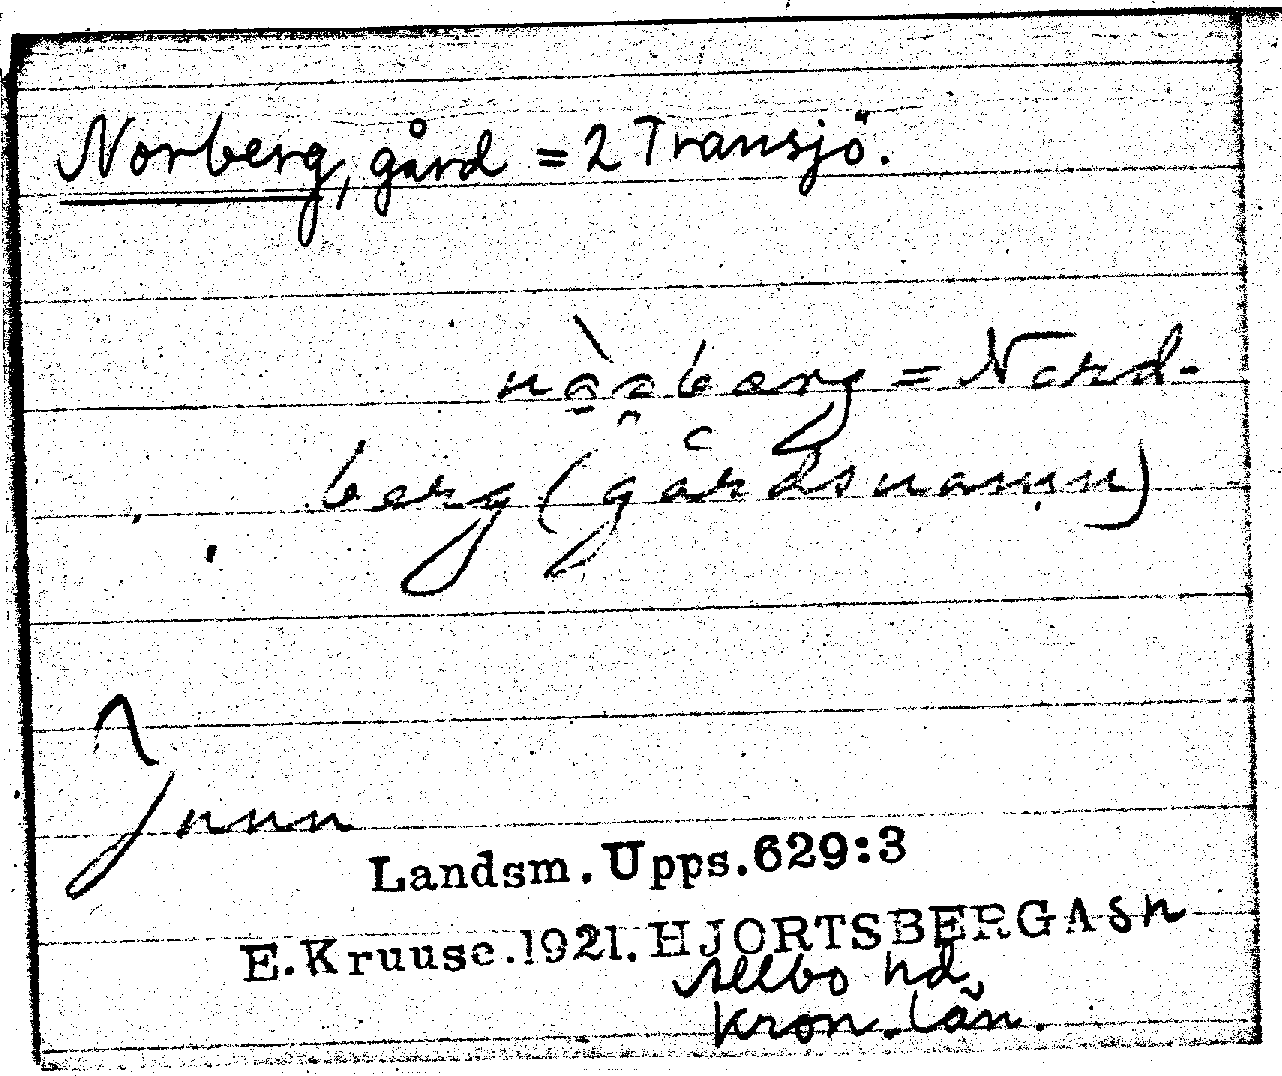 Norberg, gård = 2 Transjö.
= Nord-
berg (gårdsnamn)
Landsm. Upps. 629:3
E. Kruuse. 1921. HJORTSBERGA sn
Allbo hd
Kron. län.